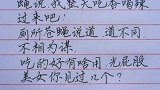 蝇说我整天吃香喝辣
过来吧!
厕所苍蝇说道道不同
不相为谋.
吃的好有啥用光屁股
美女你见过几个?